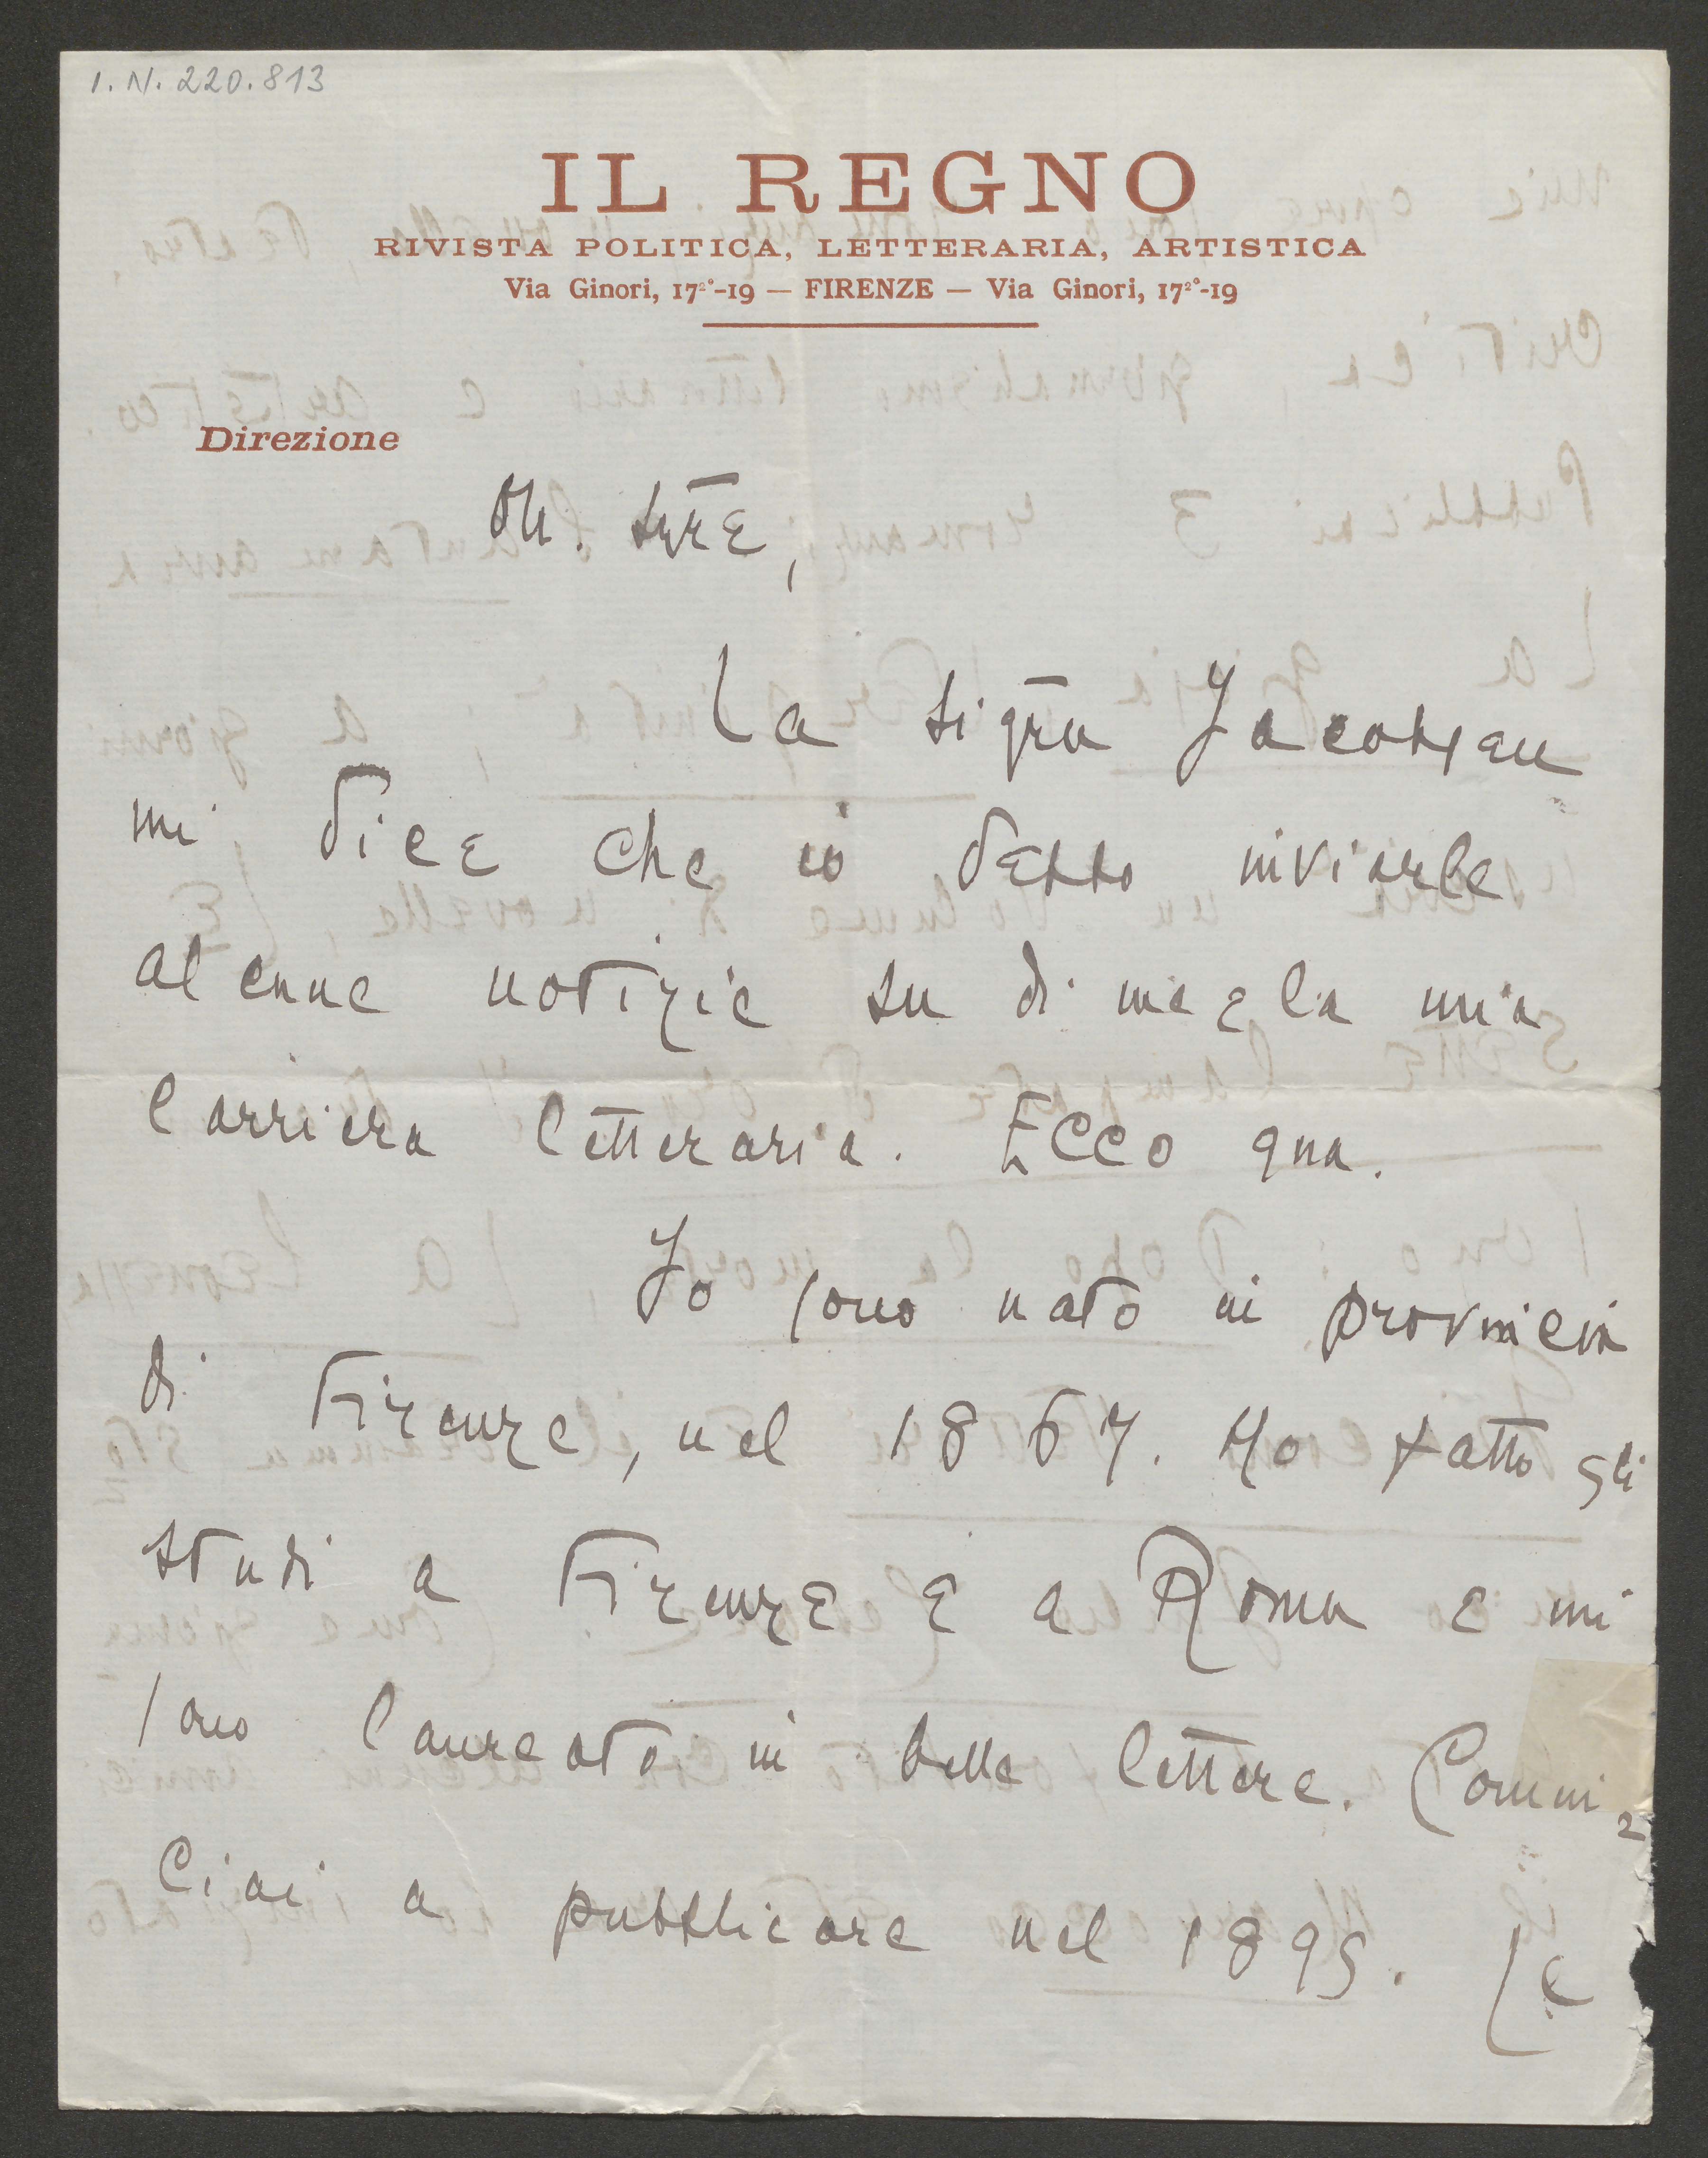 I. N. 220.813
IL REGNO
RIVISTA POLITICA, LETTERARIA, ARTISTICA
Via Ginori, 17²°-19 — FIRENZE — Via Ginori, 17²°-19
Direzione
La Sigra Jacobsen
mi dice che io debbo inviarle
alcune notizie su di me e la mia
carriera letteraria. Ecco qua.
Io sono nato in provincia
di Firenze, nel 1867. Ho fatto gli
studi a Firenze e a Roma e mi
sono laureato in belle lettere. Comin=
ciai a pubblicare nel 1895. Le